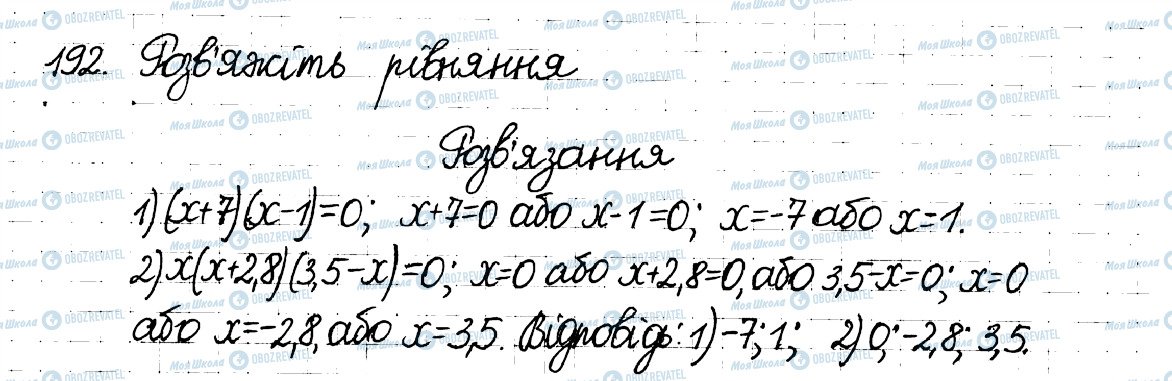 192. Розв'яжіть рівняння
Розв'язання
1) (x+7)(x-1)=0; x+7=0 або x-1=0; x=-7 або x=1.
2) x(x+2,8)(3,5-x)=0; x=0 або x+2,8=0, або 3,5-x=0; x=0
або x=-2,8, або x=3,5. Відповідь: 1) -7; 1; 2) 0; -2,8; 3,5.
Моя Школа OBOZREVATEL